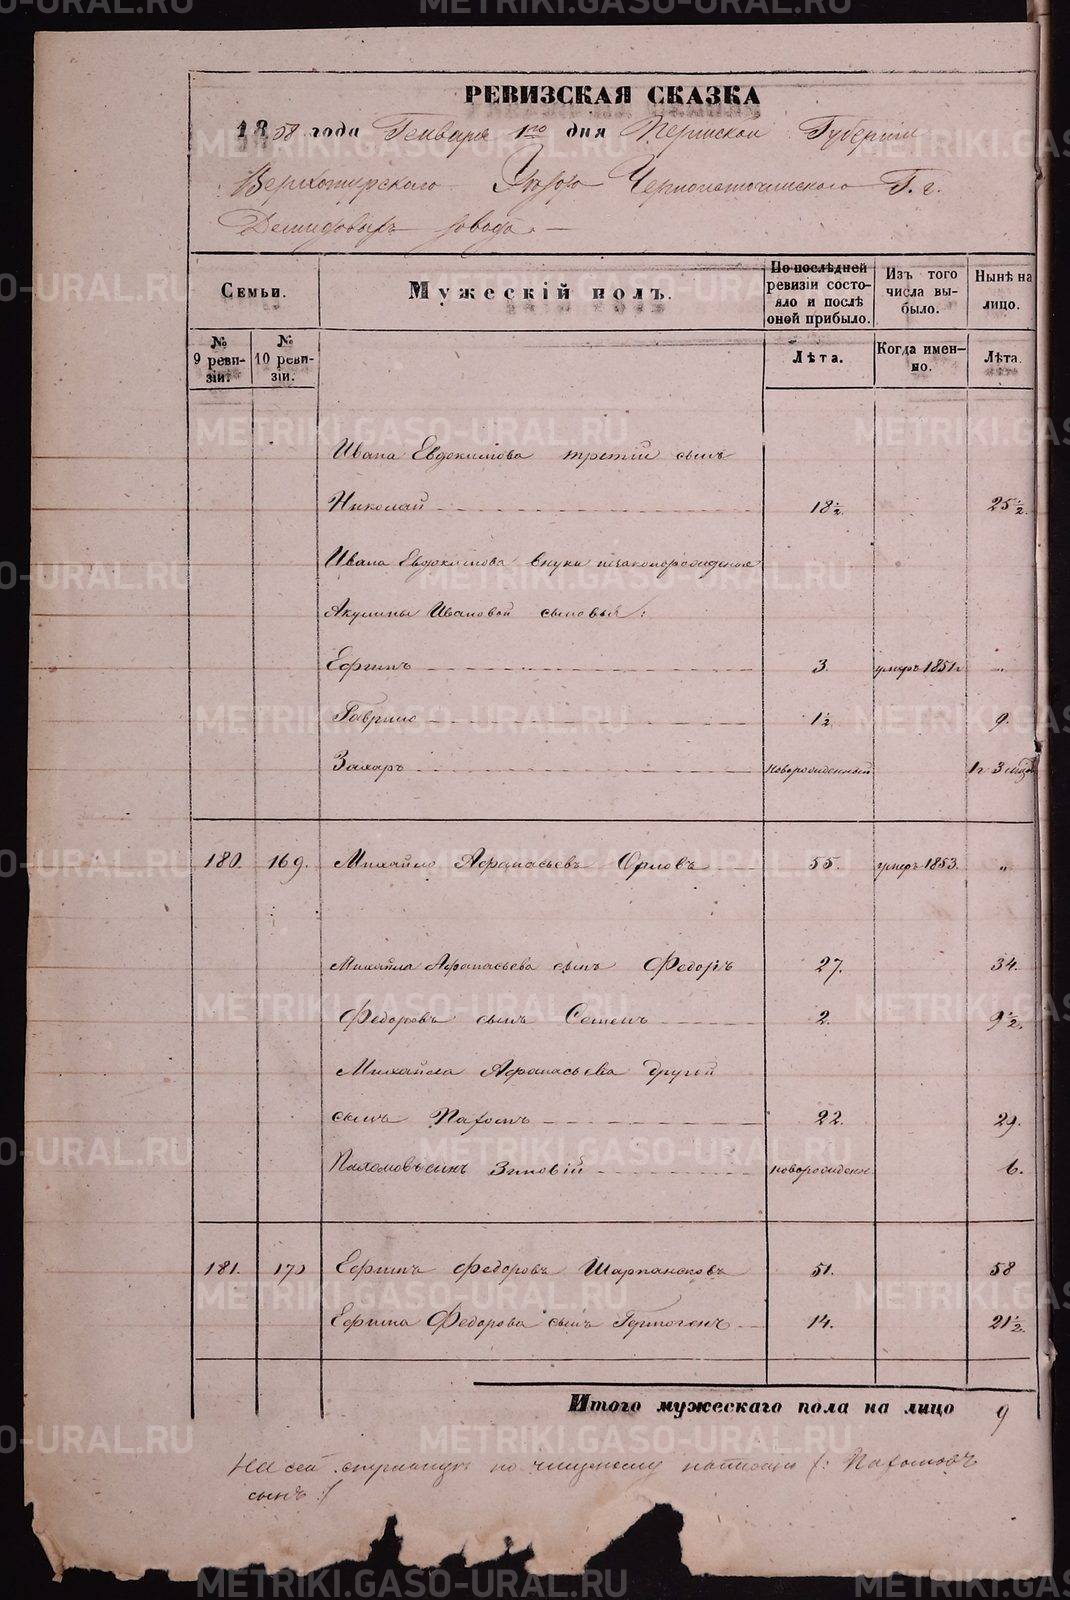 РЕВИЗСКАЯ СКАЗКА
1858 года Генваря 1го дня Пермской Губернии
Верхотурского Уезда Черноисточинского Г. г.
Демидовыхъ завода. —
Семьи.
Мужескій полъ.
По послѣдней ревизіи состояло и послѣ оной прибыло.
Изъ того числа выбыло.
Нынѣ на лицо.
№ 9 ревизіи.
№ 10 ревизіи.
Лѣта.
Когда именно.
Лѣта.
Ивана Евдокимова третій сынъ
Николай 18½. 25½.
Ивана Евдокимова внуки незаконорожденные
Акулины Ивановой сыновья:
Ефимъ 3. умеръ 1851г „
Гаврило 1½ 9.
Захаръ новорожденный 1г 3 мѣся
180. 169. Михайло Афанасьевъ Орловъ 55. умеръ 1853. „
Михайла Афанасьева сынъ Федоръ 27. 34.
Федоровъ сынъ Семенъ 2. 9½.
Михайла Афанасьева другой
сынъ Пахомъ 22. 29.
Пахомовъ сынъ Зиновій новорожден. 6.
181. 170 Ефимъ Федоровъ Шарпансковъ 51. 58
Ефима Федорова сынъ Гермогенъ 14. 21½.
Итого мужескаго пола на лицо 9
На сей страницѣ по чищеному написано /: Пахомовъ
сынъ :/
METRIKI.GASO-URAL.RU